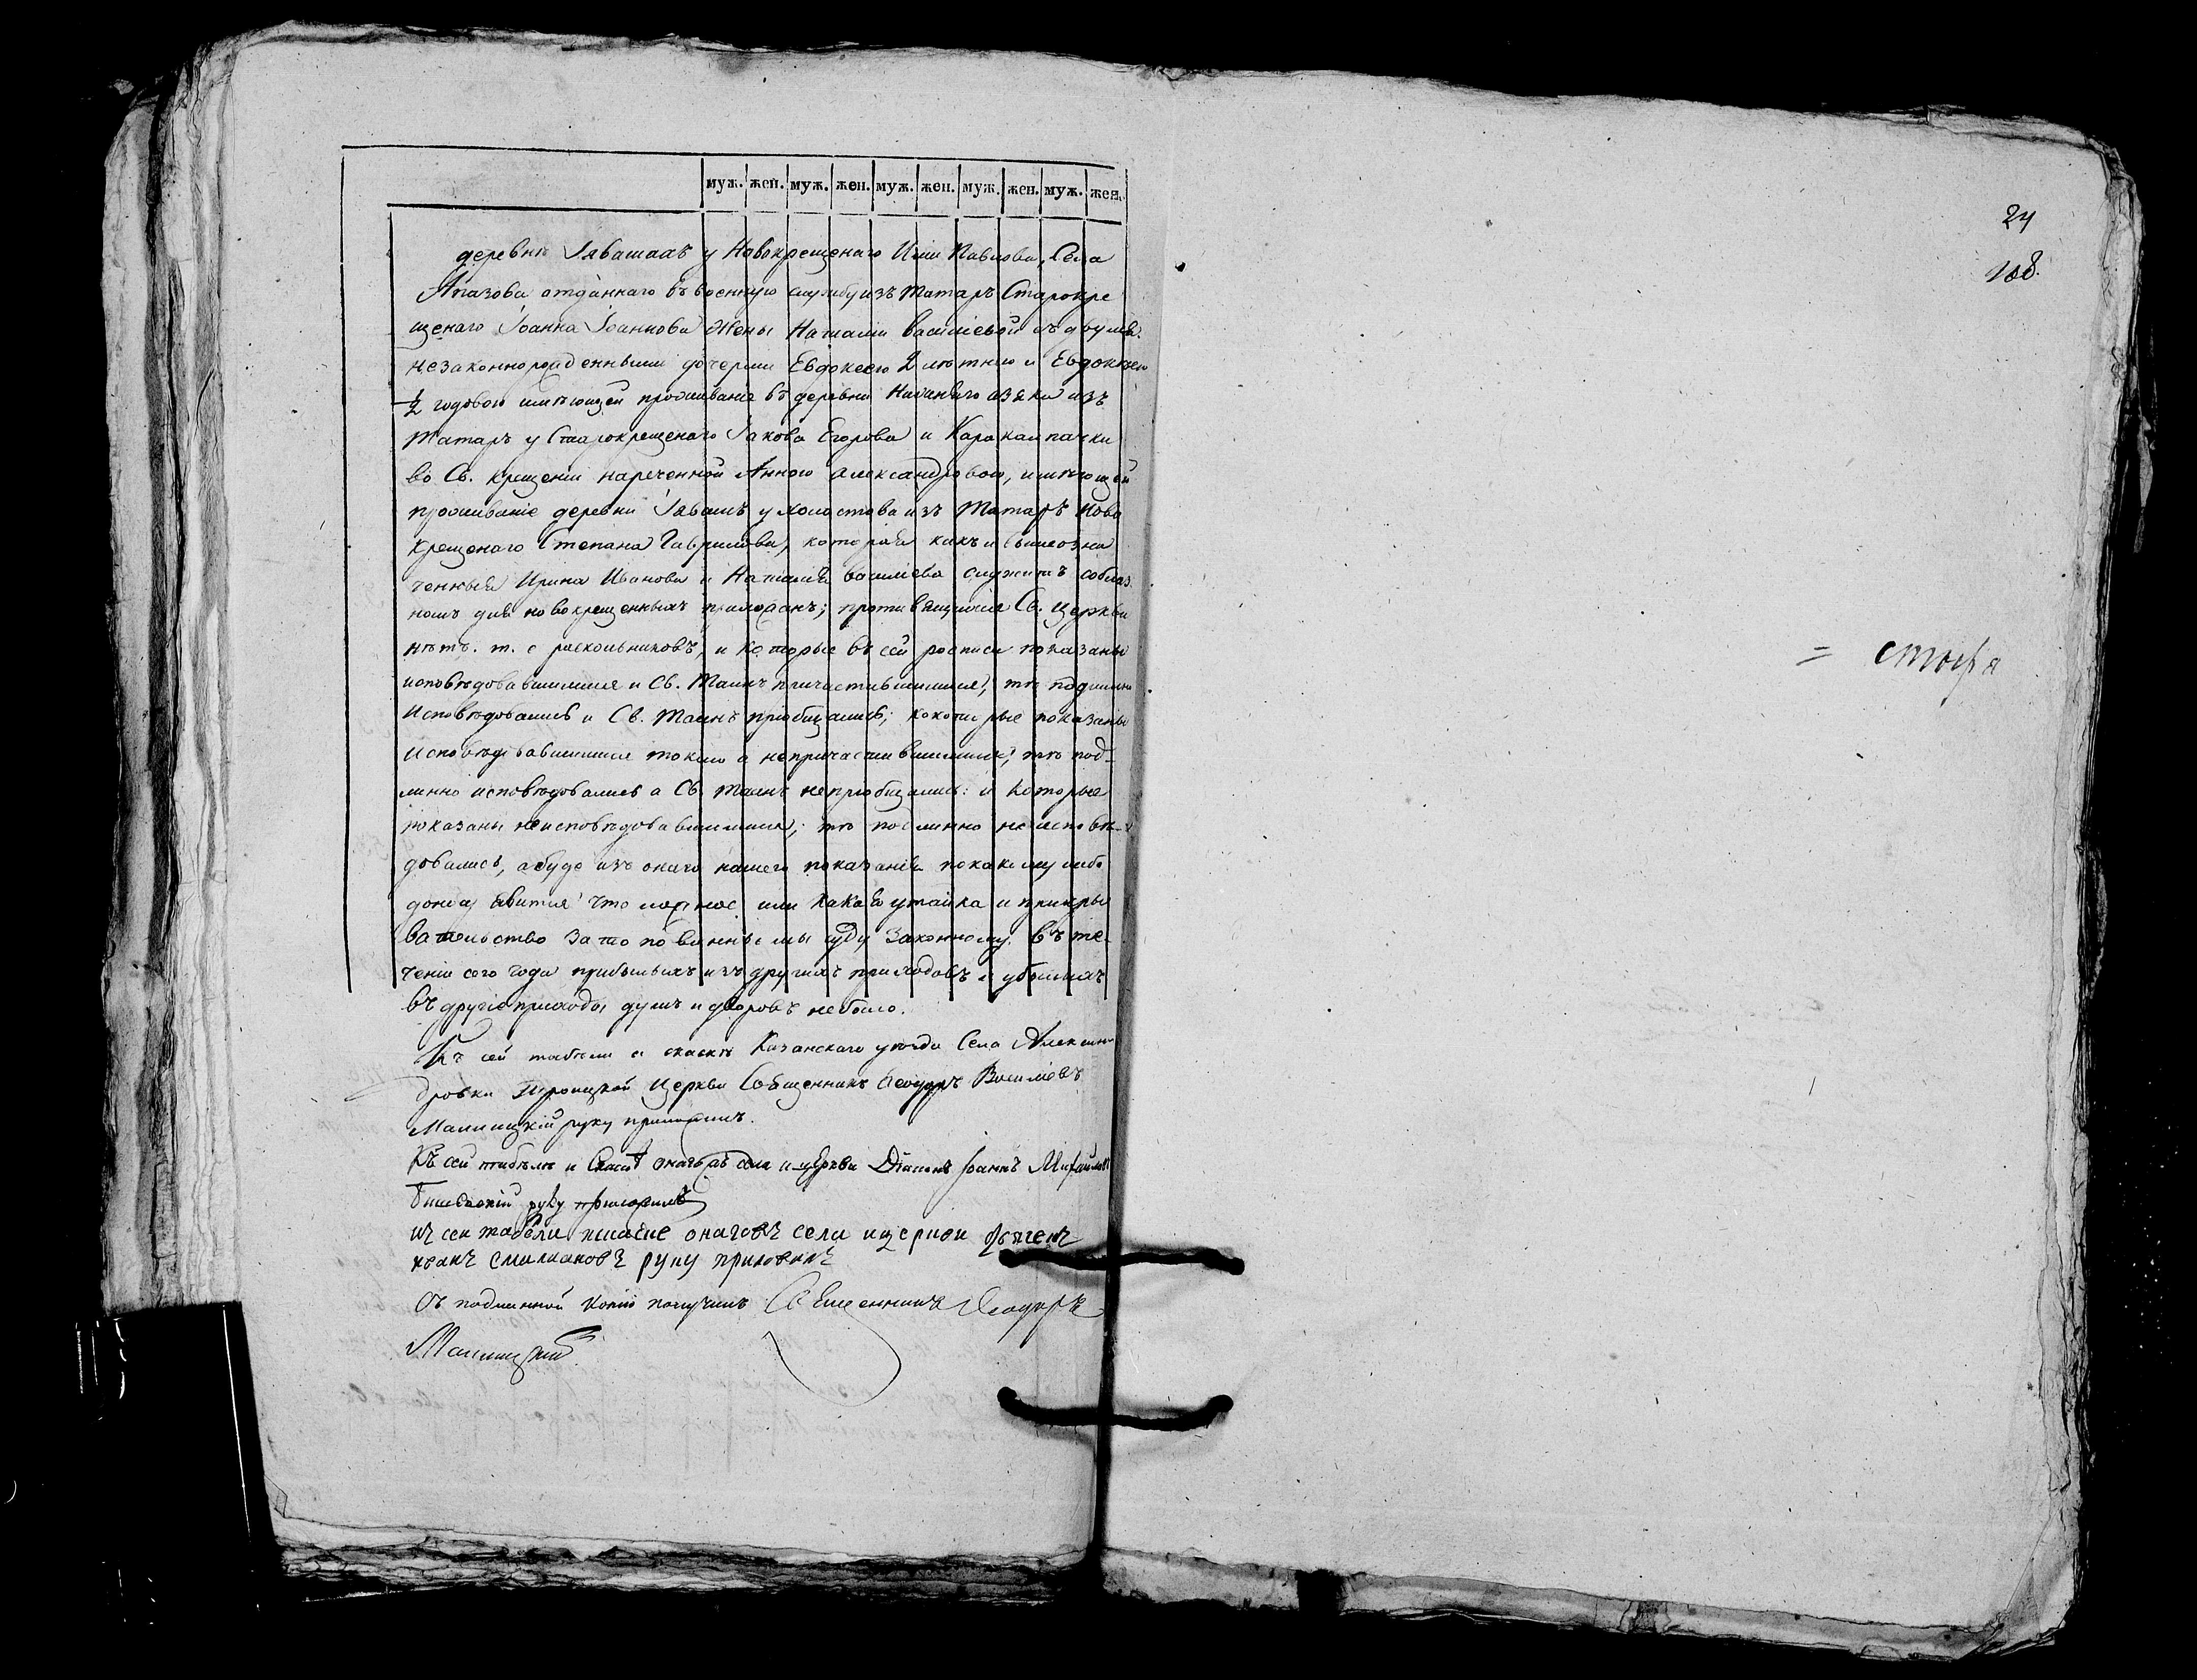 муж. жен. муж. жен. муж. жен. муж. жен. муж. жен.
деревни у Новокрещенаго Павлова, Села
Апазова отданнаго въ военную службу изъ Татаръ Старокре
щенаго Іоанна Іоаннова Жены Наталіи Василіевой съ двумя
незаконнорожденными дочерми Евдокеею 2 лѣтнею и Евдокеею
½ годовою имѣющей проживаніе въ деревни изъ
Татаръ у Старокрещенаго Іакова Егорова и
во Св. крещеніи нареченной Анною Александровою, имѣющей
проживаніе деревни у холостова изъ Татаръ Ново
крещенаго Степана Гаврилова, которая какъ и вышеозна
ченныя Ирина Иванова и Наталія Василіева служитъ соблаз
номъ для новокрещенныхъ прихожанъ; противящихся Св. Церкви
нѣтъ. т. е раскольниковъ, и которые въ сей росписи показаны
исповѣдовавшимися и Св. Таинъ причастившимися, тѣ подлинно
Исповѣдовались и Св. Таинъ пріобщались; кокоторые показаны
Исповѣдовавшимися токмо а непричастившимися; тѣ под-
линно исповѣдовались а Св. Таинъ непріобщались: и которые
показаны неисповѣдовавшимися, тѣ подлинно неисповѣ-
довались, абуде изъ онаго нашего показанія покакому либо
доносу явится что ложное или какая утайка и прикры
вательство зато повинны мы суду Законному. Въ те
ченіи сего года прибывшихъ изъ другихъ приходовъ и убывшихъ
въ другіе приходы душъ и дворовъ небыло.
Къ сей табели и сказкѣ Казанскаго уѣзда Села Алексан
дровки Троицкой Церкви Священникъ Ѳеодоръ Василіевъ
Малицкій руку приложилъ.
Къ сей табели и Сказкѣ онагожъ села и церкви Діаконъ Іоаннъ Михайловъ
руку приложилъ
онагожъ села ицеркви
иванъ руку приложилъ
Съ подлинной копію получилъ Священникъ Ѳеодоръ
Малицкій
24
108.